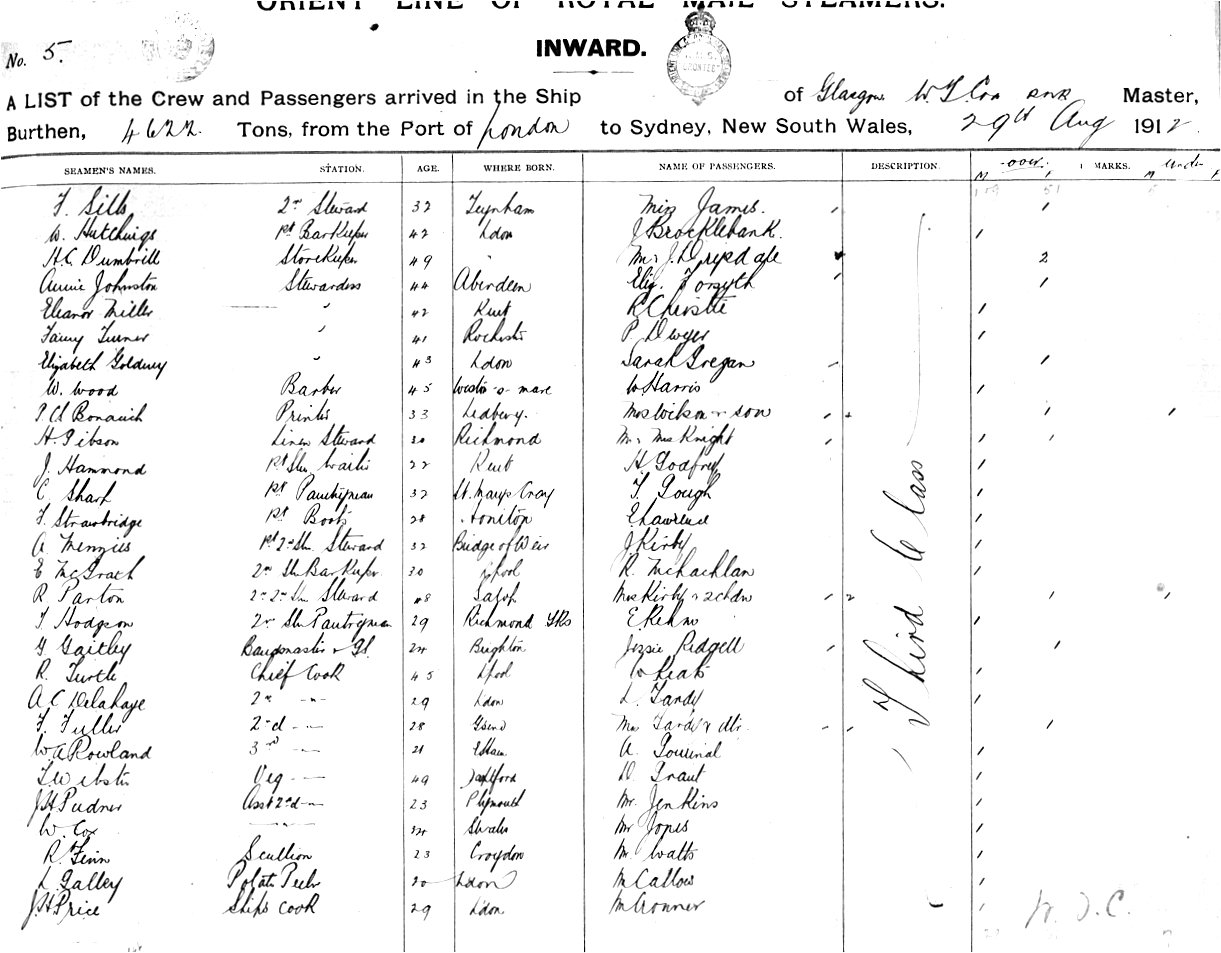 ORIENT LINE OF ROYAL MAIL STEAMERS.
No. 5.
INWARD.
A LIST of the Crew and Passengers arrived in the Ship of Glasgow Master,
Burthen, 4622 Tons, from the Port of London to Sydney, New South Wales, 29th Aug 1912.
SEAMEN'S NAMES. STATION. AGE. WHERE BORN. NAME OF PASSENGERS. DESCRIPTION. over MARKS. under
M F M F
F. Sills 2nd Steward 32 Teynham Miss James.
W. Hutchings Bar Keeper 42 Ldon J Brocklebank.
H.C. Dumbrill Storekeeper 49 " 2
Annie Johnston Stewardess 44 Aberdeen Eliz. Forsyth
Eleanor Miller " 42 Kent R Christie
Fanny Turner " 41 Rochester P. Dwyer
Elizabeth Goldney " 43 Ldon Sarah Gregan
W. Wood Barber 45 Weston-s-mare W Harris
Printer 33 Ledbery. Mrs Wilson & son
H. Gibson Linen Steward 30 Richmond Mr & Mrs Knight
J. Hammond 22 Kent H Godfrey
C. Sharp Pantryman 32 St. Marys Cray T. Gough
F. Strawbridge Boots 28 Honiton E Lawrence
A. Menzies Steward 32 Bridge of Weir J Kirby
E McGrath 2nd Sln Bar Keeper 30 Lpool R. McLachlan
R Parton Steward 48 Salop Mrs Kirby & 2 chdn
T Hodgson 2nd Sln Pantryman 29 Richmond Yks E. Rehm
G Gaitley Bandmaster 24 Brighton Jessie Ridgell
R. Turtle Chief Cook 45 Lpool
A C Delahaye 2nd " 29 Ldon L. Tandy
F. Fuller 28 Gsend Mrs Tandy & dtr.
W A Rowland 3rd " 21 A.
Webster Veg " 49 Dartford D. Grant
J H Pudner Asst 23 Plymouth Mr. Jenkins
W. Cox Mr Jones
R. Finn Scullion 23 Croydon Mr Watts
L. Galley Potato Peeler 20 Ldon M Callow
J H Price Ships Cook 29 Ldon
Third Class